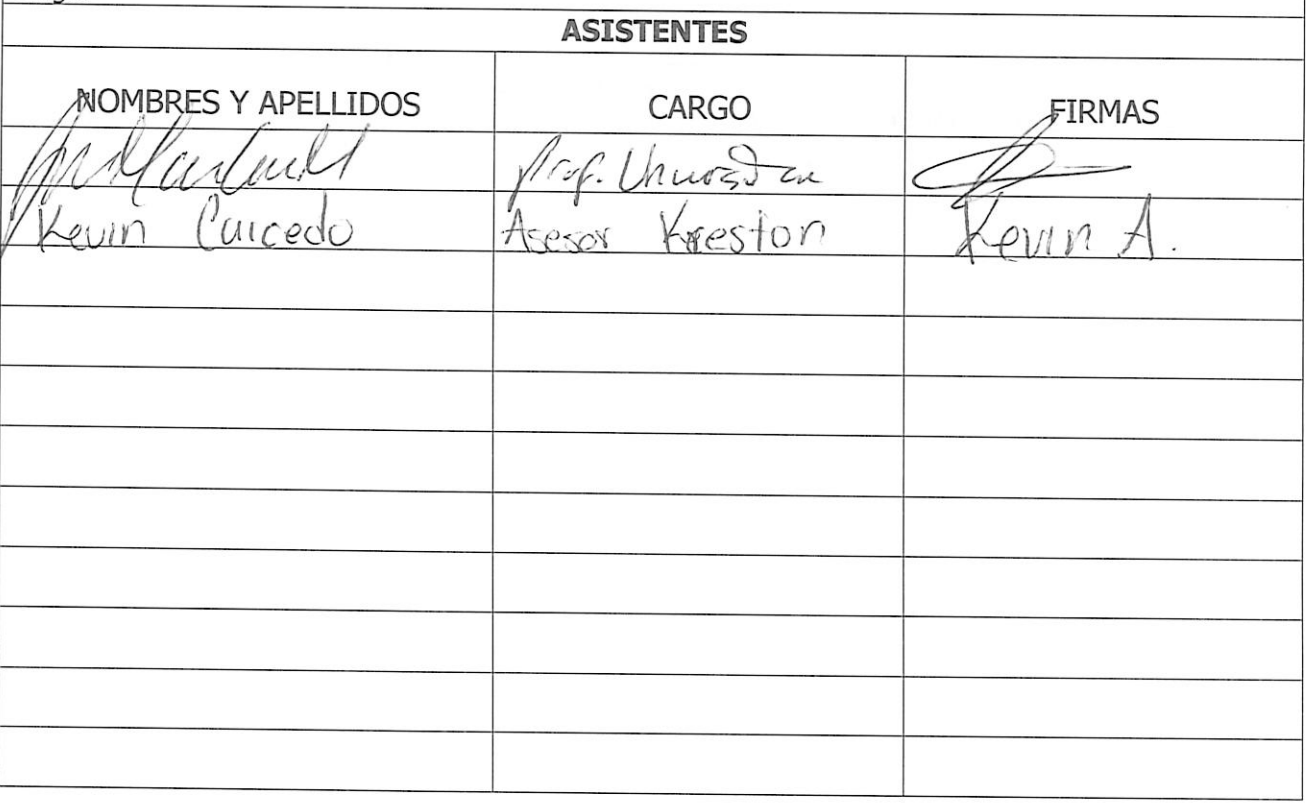 ASISTENTES
NOMBRES Y APELLIDOS CARGO FIRMAS
Prof.
Kevin Caicedo Asesor Kreston Kevin A.